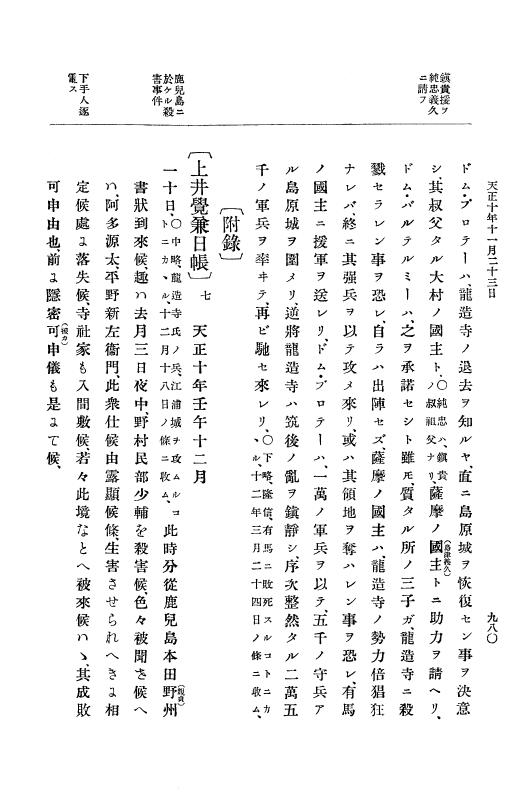 天正十年十一月二十三日
九八〇
鎮貴援ヲ
純忠義久
ニ請フ
鹿兒島ニ
於ケル殺
害事件
下手人逐
電ス
ドム・プロテーハ、龍造寺ノ退去ヲ知ルヤ、直ニ島原城ヲ恢復セン事ヲ決意
シ、其叔父タル大村ノ國主ト、〇純忠ハ、鎮貴ノ叔祖父ナリ、薩摩ノ國主(島津義久)トニ助力ヲ請ヘリ、
ドム・バルテルミーハ、之ヲ承諾セシト雖モ、質タル所ノ三子ガ、龍造寺ニ殺
戮セラレン事ヲ恐レ、自ラハ出陣セズ、薩摩ノ國主ハ、龍造寺ノ勢力倍猖狂
ナレバ、終ニ其强兵ヲ以テ攻メ來リ、或ハ其領地ヲ奪ハレン事ヲ恐レ、有馬
ノ國主ニ援軍ヲ送レリ、ドム・プロテーハ、一萬ノ軍兵ヲ以テ、五千ノ守兵ア
ル島原城ヲ圍メリ、逆將龍造寺ハ筑後ノ亂ヲ鎮靜シ、序次整然タル二萬五
千ノ軍兵ヲ率ヰテ、再ビ馳セ來レリ、〇下略、隆信、有馬ニ敗死スルコトニカヽル、十二年三月二十四日ノ條ニ收ム、
〔附錄〕
〔上井覺兼日帳〕 七 天正十年壬午十二月
一十日、〇中略、龍造寺氏ノ兵、江浦城ヲ攻ムルコトニカヽル、十二月十八日ノ條ニ收ム、此時分從鹿兒島本田野州(親貞)
書狀到來候、趣ハ去月三日夜中、野村民部少輔を殺害候、色々被聞さ候へ
ハ、阿多源太、平野新左衞門、此衆仕候由露顯候條、生害させられへきよ相
定候處よ落失候、寺社家も入間敷候、若々此境なとへ被來候ハヽ、其成敗
可申由也、前よ隱密可(被カ)申儀も是よて候、